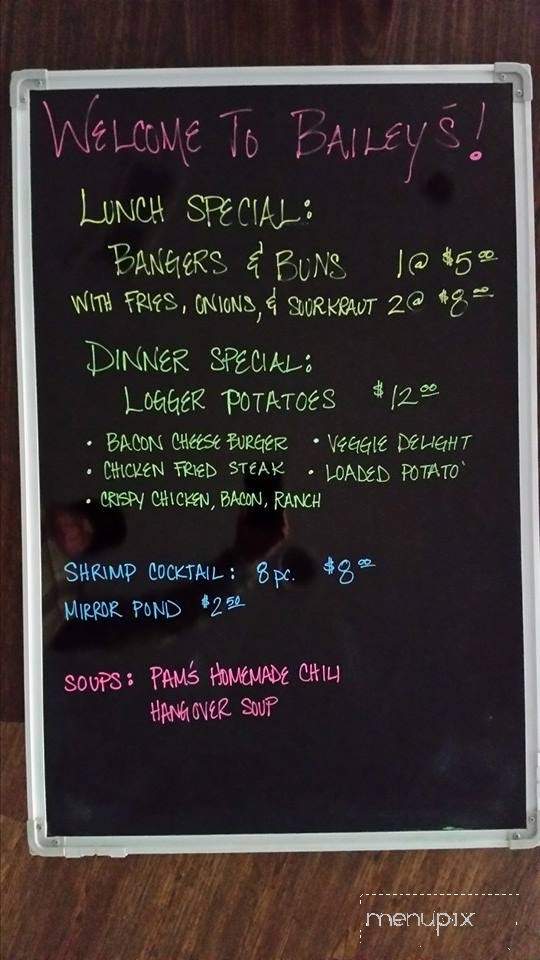 WELCOME TO BAILEY'S!
LUNCH SPECIAL:
BANGERS & BUNS 1@ $5.00
WITH FRIES, ONIONS, & SOURKRAUT 2@ $8.00
DINNER SPECIAL:
LOGGER POTATOES $12.00
• BACON CHEESE BURGER • VEGGIE DELIGHT
• CHICKEN FRIED STEAK • LOADED POTATO
• CRISPY CHICKEN, BACON, RANCH
SHRIMP COCKTAIL: 8 pc. $8.00
MIRROR POND $2.50
SOUPS: PAM'S HOMEMADE CHILI
HANGOVER SOUP
menupix